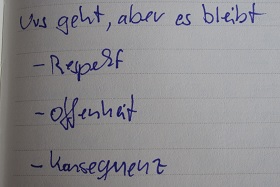 Uvs geht, aber es bleibt
- Respekt
- Offenheit
- Konsequenz